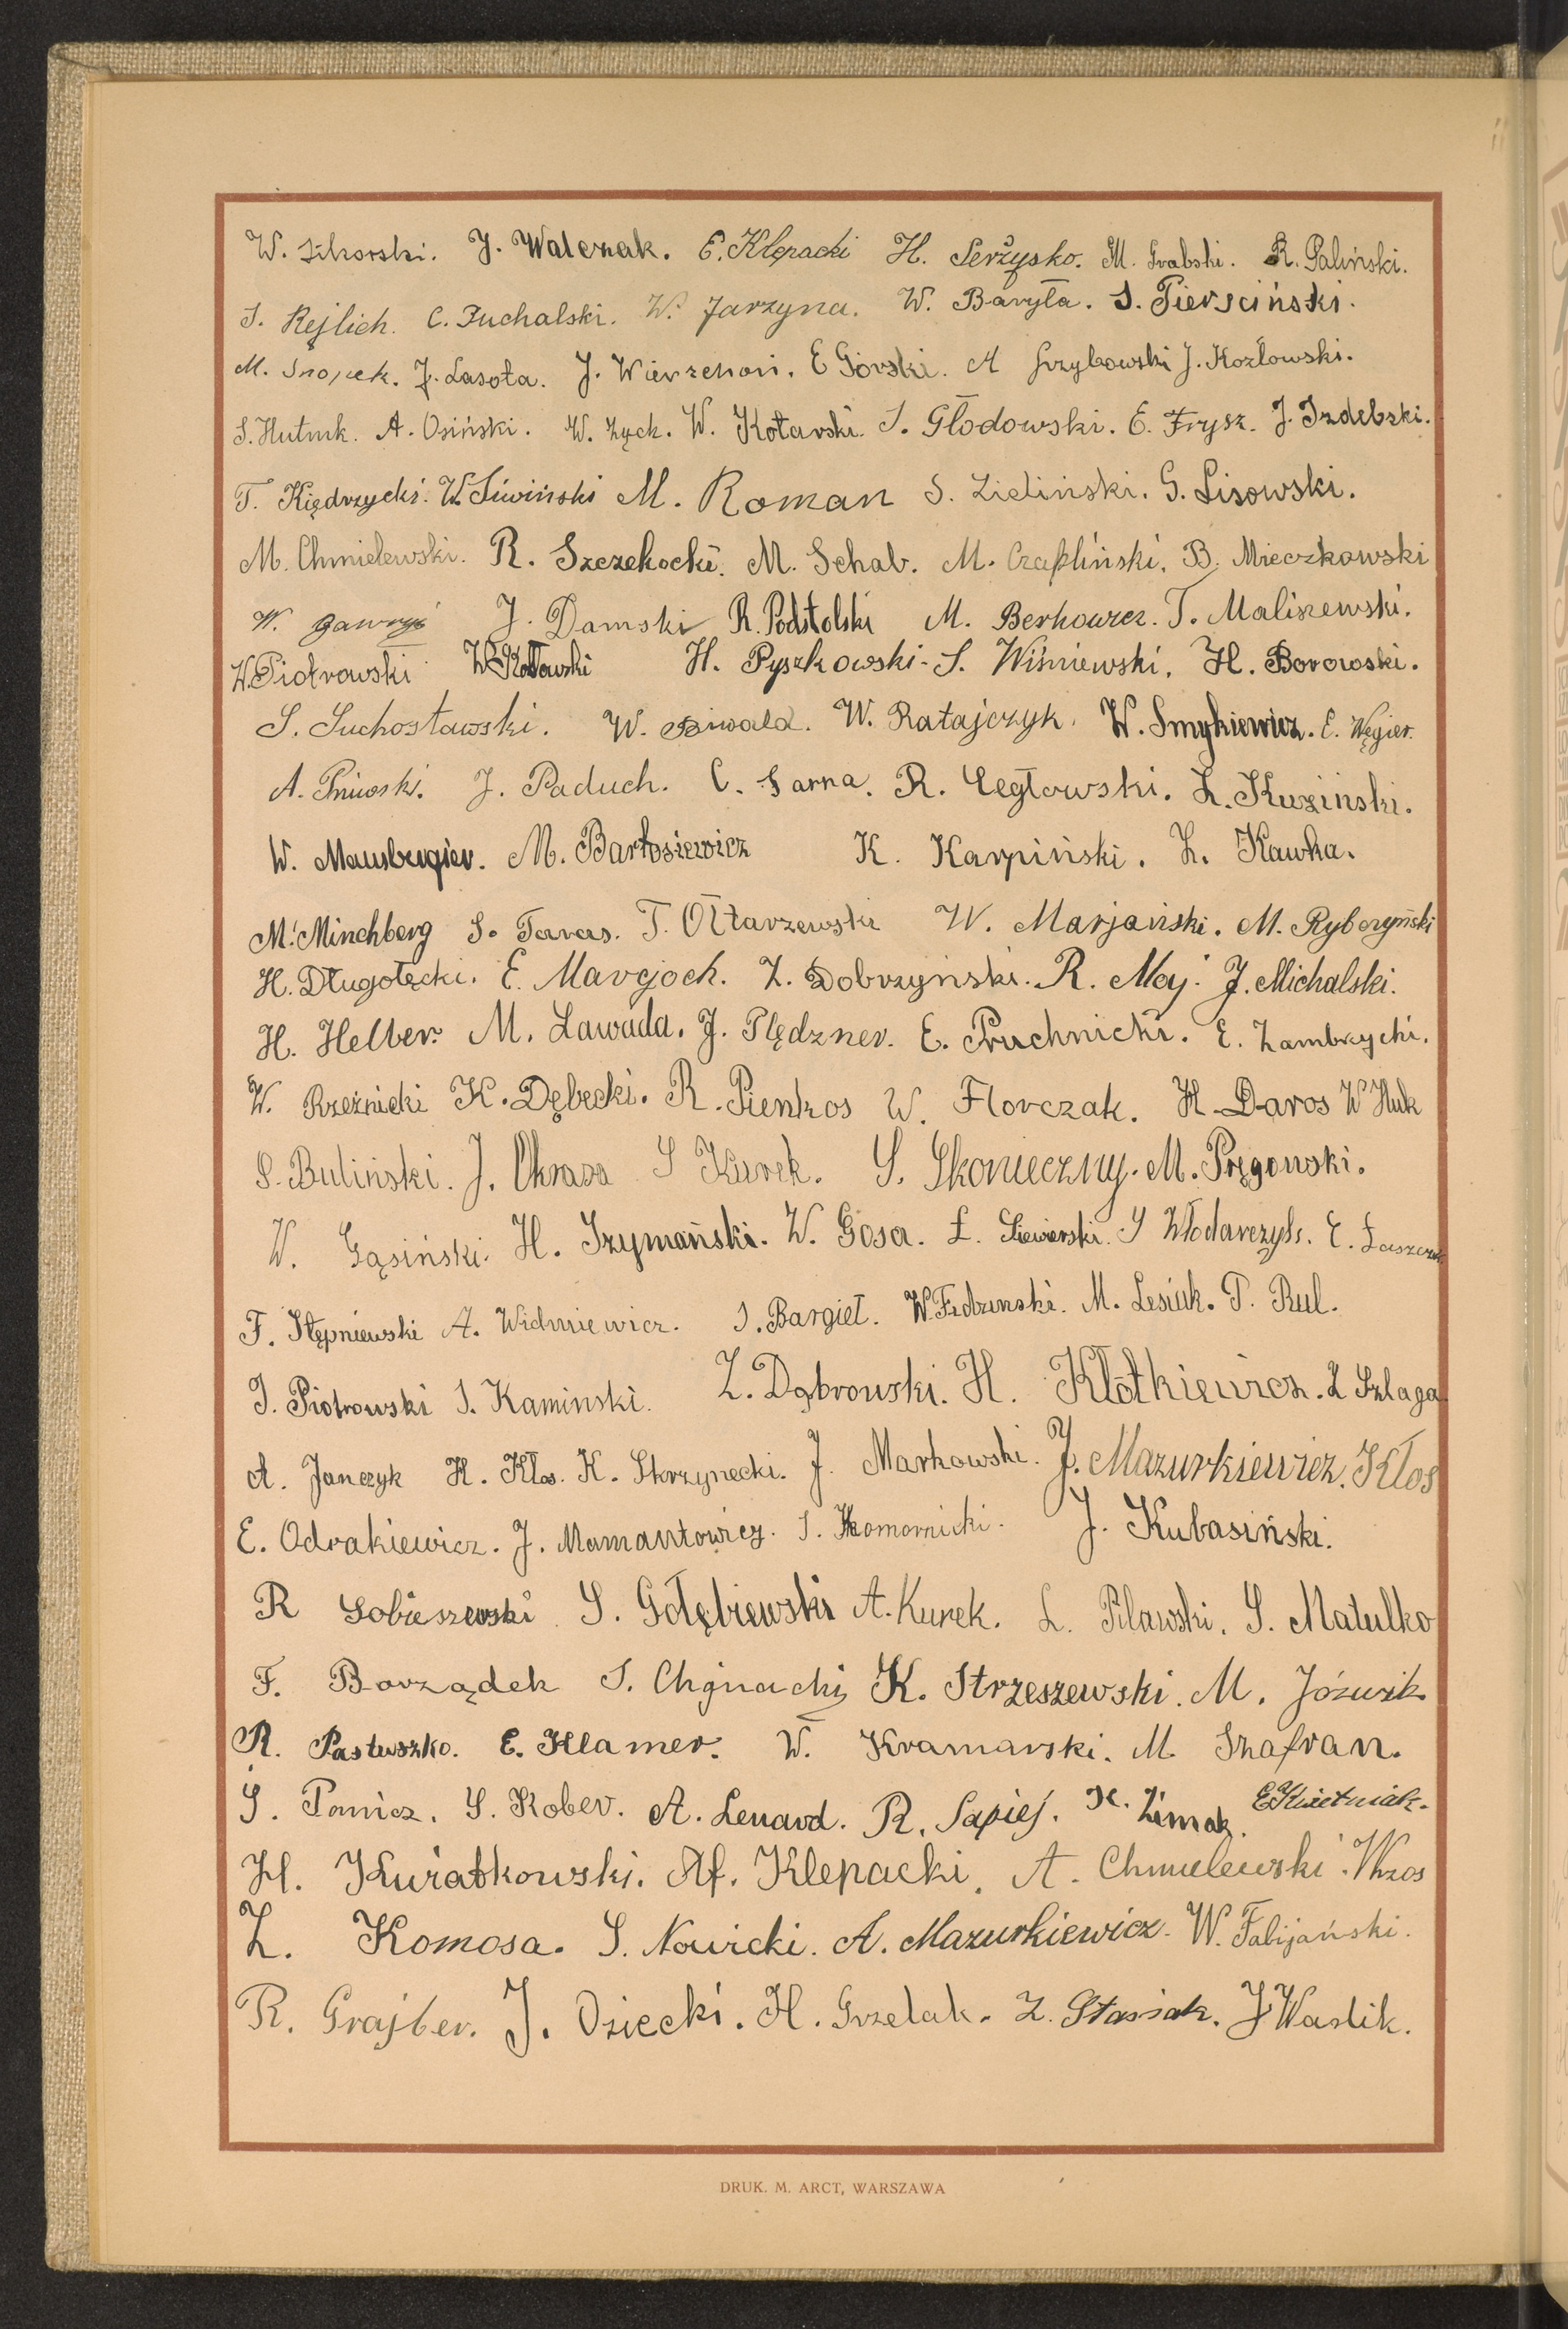 W. Sikorski. J. Walczak. E. Klepacki H. Serzysko. M. Grabski. R. Paliński.
S. Rejlich. C. Puchalski. W. Jarzyna. W. Baryła. S. Pierściński.
M. Snopek. J. Lasota. J. Wierzchoń. E Górski. A Grzybowski J. Kozłowski.
S. Hutnik. A. Osiński. W. Zych. W. Kotarski. S. Głodowski. E. Frysz. J. Izdebski.
T. Kiędrzycki. W. Siwiński M. Roman S. Zieliński. G. Lisowski.
M. Chmielewski. R. Szczekocki. M. Schab. M. Czapliński. B. Mieczkowski
W. Gawryś J. Damski R. Podstolski M. Berkowicz. T. Maliszewski.
W. Piotrowski W. Kotłowski H. Pyszkowski. S. Wiśniewski. H. Borowski.
S. Suchosławski. W. W. Ratajczyk. W. Smykiewicz. E. Węgier.
A. Pniewski. J. Paduch. C. Sarna. R. Cegłowski. Z. Kuziński.
W. M. Bartosiewicz K. Karpiński. Z. Kawka.
M. Minchberg S. Taras. T. Ołtarzewski W. Marjański. M. Rybczyński
H. Długołęcki. E. Marcjoch. Z. Dobrzyński. R. Moj. J. Michalski.
H. Helber. M. Zawada. J. Plędzner. E. Pruchnicki. E. Zambrzycki.
W. Rzeźnicki K. Dębecki. R. Pienkos W. Florczak. H. Daros W Huk
S. Buliński. J. Okrasa S Kurek. S. Skonieczny. M. Pręgowski.
W. Gąsiński. H. Szymański. W. Gosa. Ł. Siewierski. S Włodarczyk. E. Łaszczuk
F. Stępniewski A. Widmiewicz. S. Bargieł. W. Fidzinski. M. Lesiuk. P. Rul.
J. Piotrowski S. Kaminski. Z. Dąbrowski. H. Kłotkiewicz. Z Szlaga
A. Janczyk H. Kłos. K. Skrzynecki. J. Markowski. J. Mazurkiewicz. Kłos
E. Odrakiewicz. J. Mamantowicz. S. Komornicki. J. Kubasiński.
R Sobieszewski S. Gołębiewski A. Kurek. L. Pilawski. S. Matulko
F. Borządek S. Chojnacki K. Strzeszewski. M. Józwik.
R. Pastuszko. E. Klamer. W. Kramarski. M. Szafran.
S. Panicz. S. Kober. A. Lenard. R. Sapiej. K. Zimak. E Kwietniak.
H. Kwiatkowski. Af. Klepacki. A. Chmielewski. Wrzos
Z. Komosa. S. Nowicki. A. Mazurkiewicz. W. Fabijański.
R. Grajber. J. Osiecki. H. Grzelak. Z. Stasiak. J Wardik.
DRUK. M. ARCT, WARSZAWA